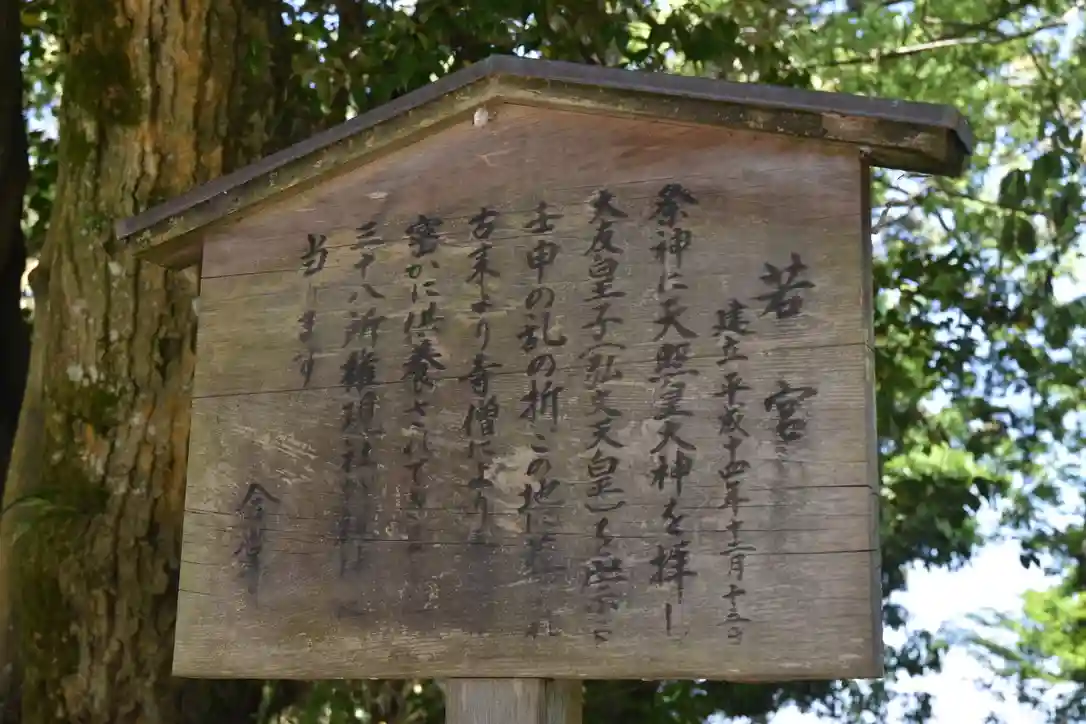 若宮
建立平成十四年十二月十
祭神に天照皇大神を拝し
大友皇子(弘文天皇)
壬申の乱の折この地に
古来より寺僧により
密かに供養されて
三十八所権現社
当ります